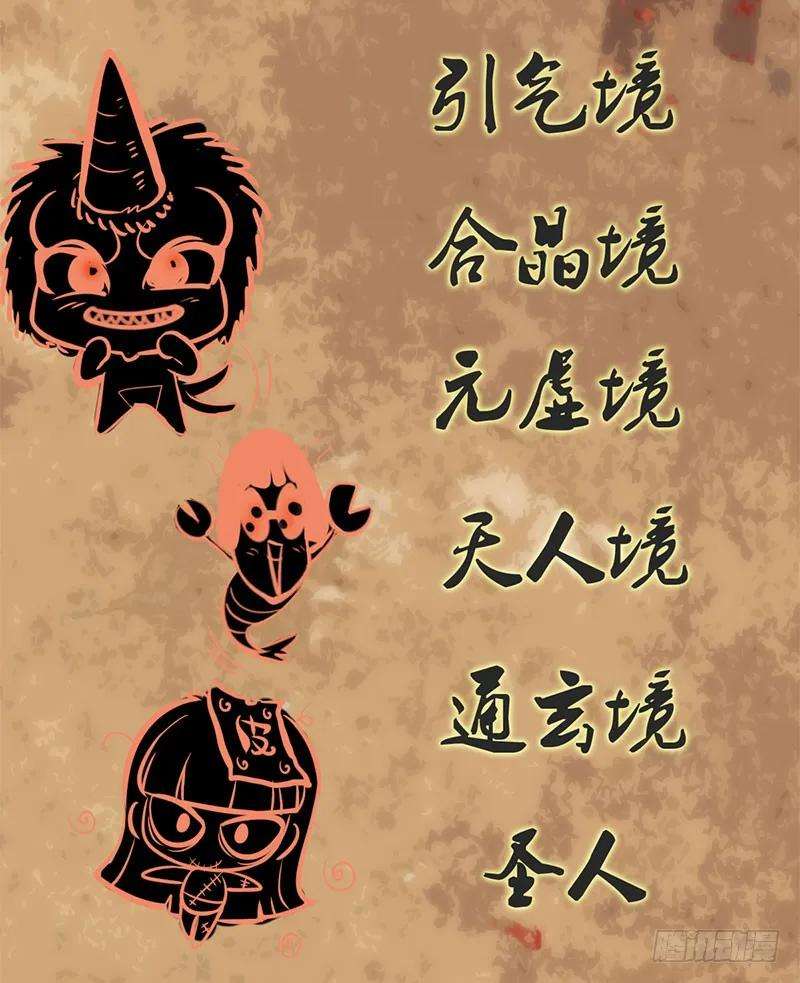 引气境
合晶境
元虚境
天人境
通玄境
皮
圣人
腾讯动漫